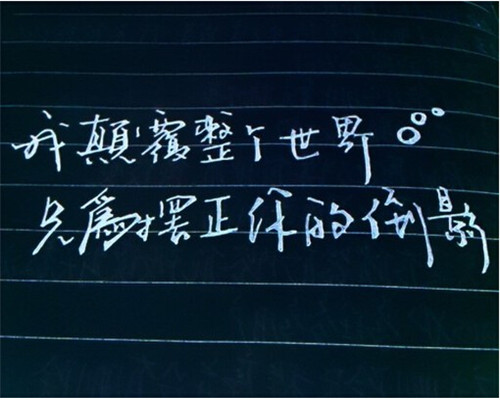 我顛覆整个世界
只為擺正你的倒影